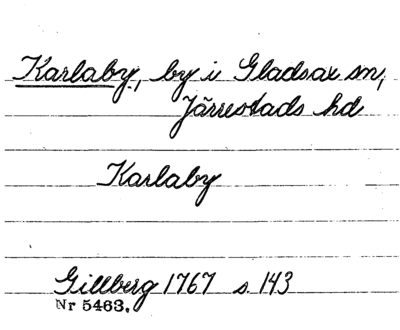 Karlaby, by i Gladsax sn,
Järrestads hd
Karlaby
Gillberg 1767 s. 143
Nr 5463.